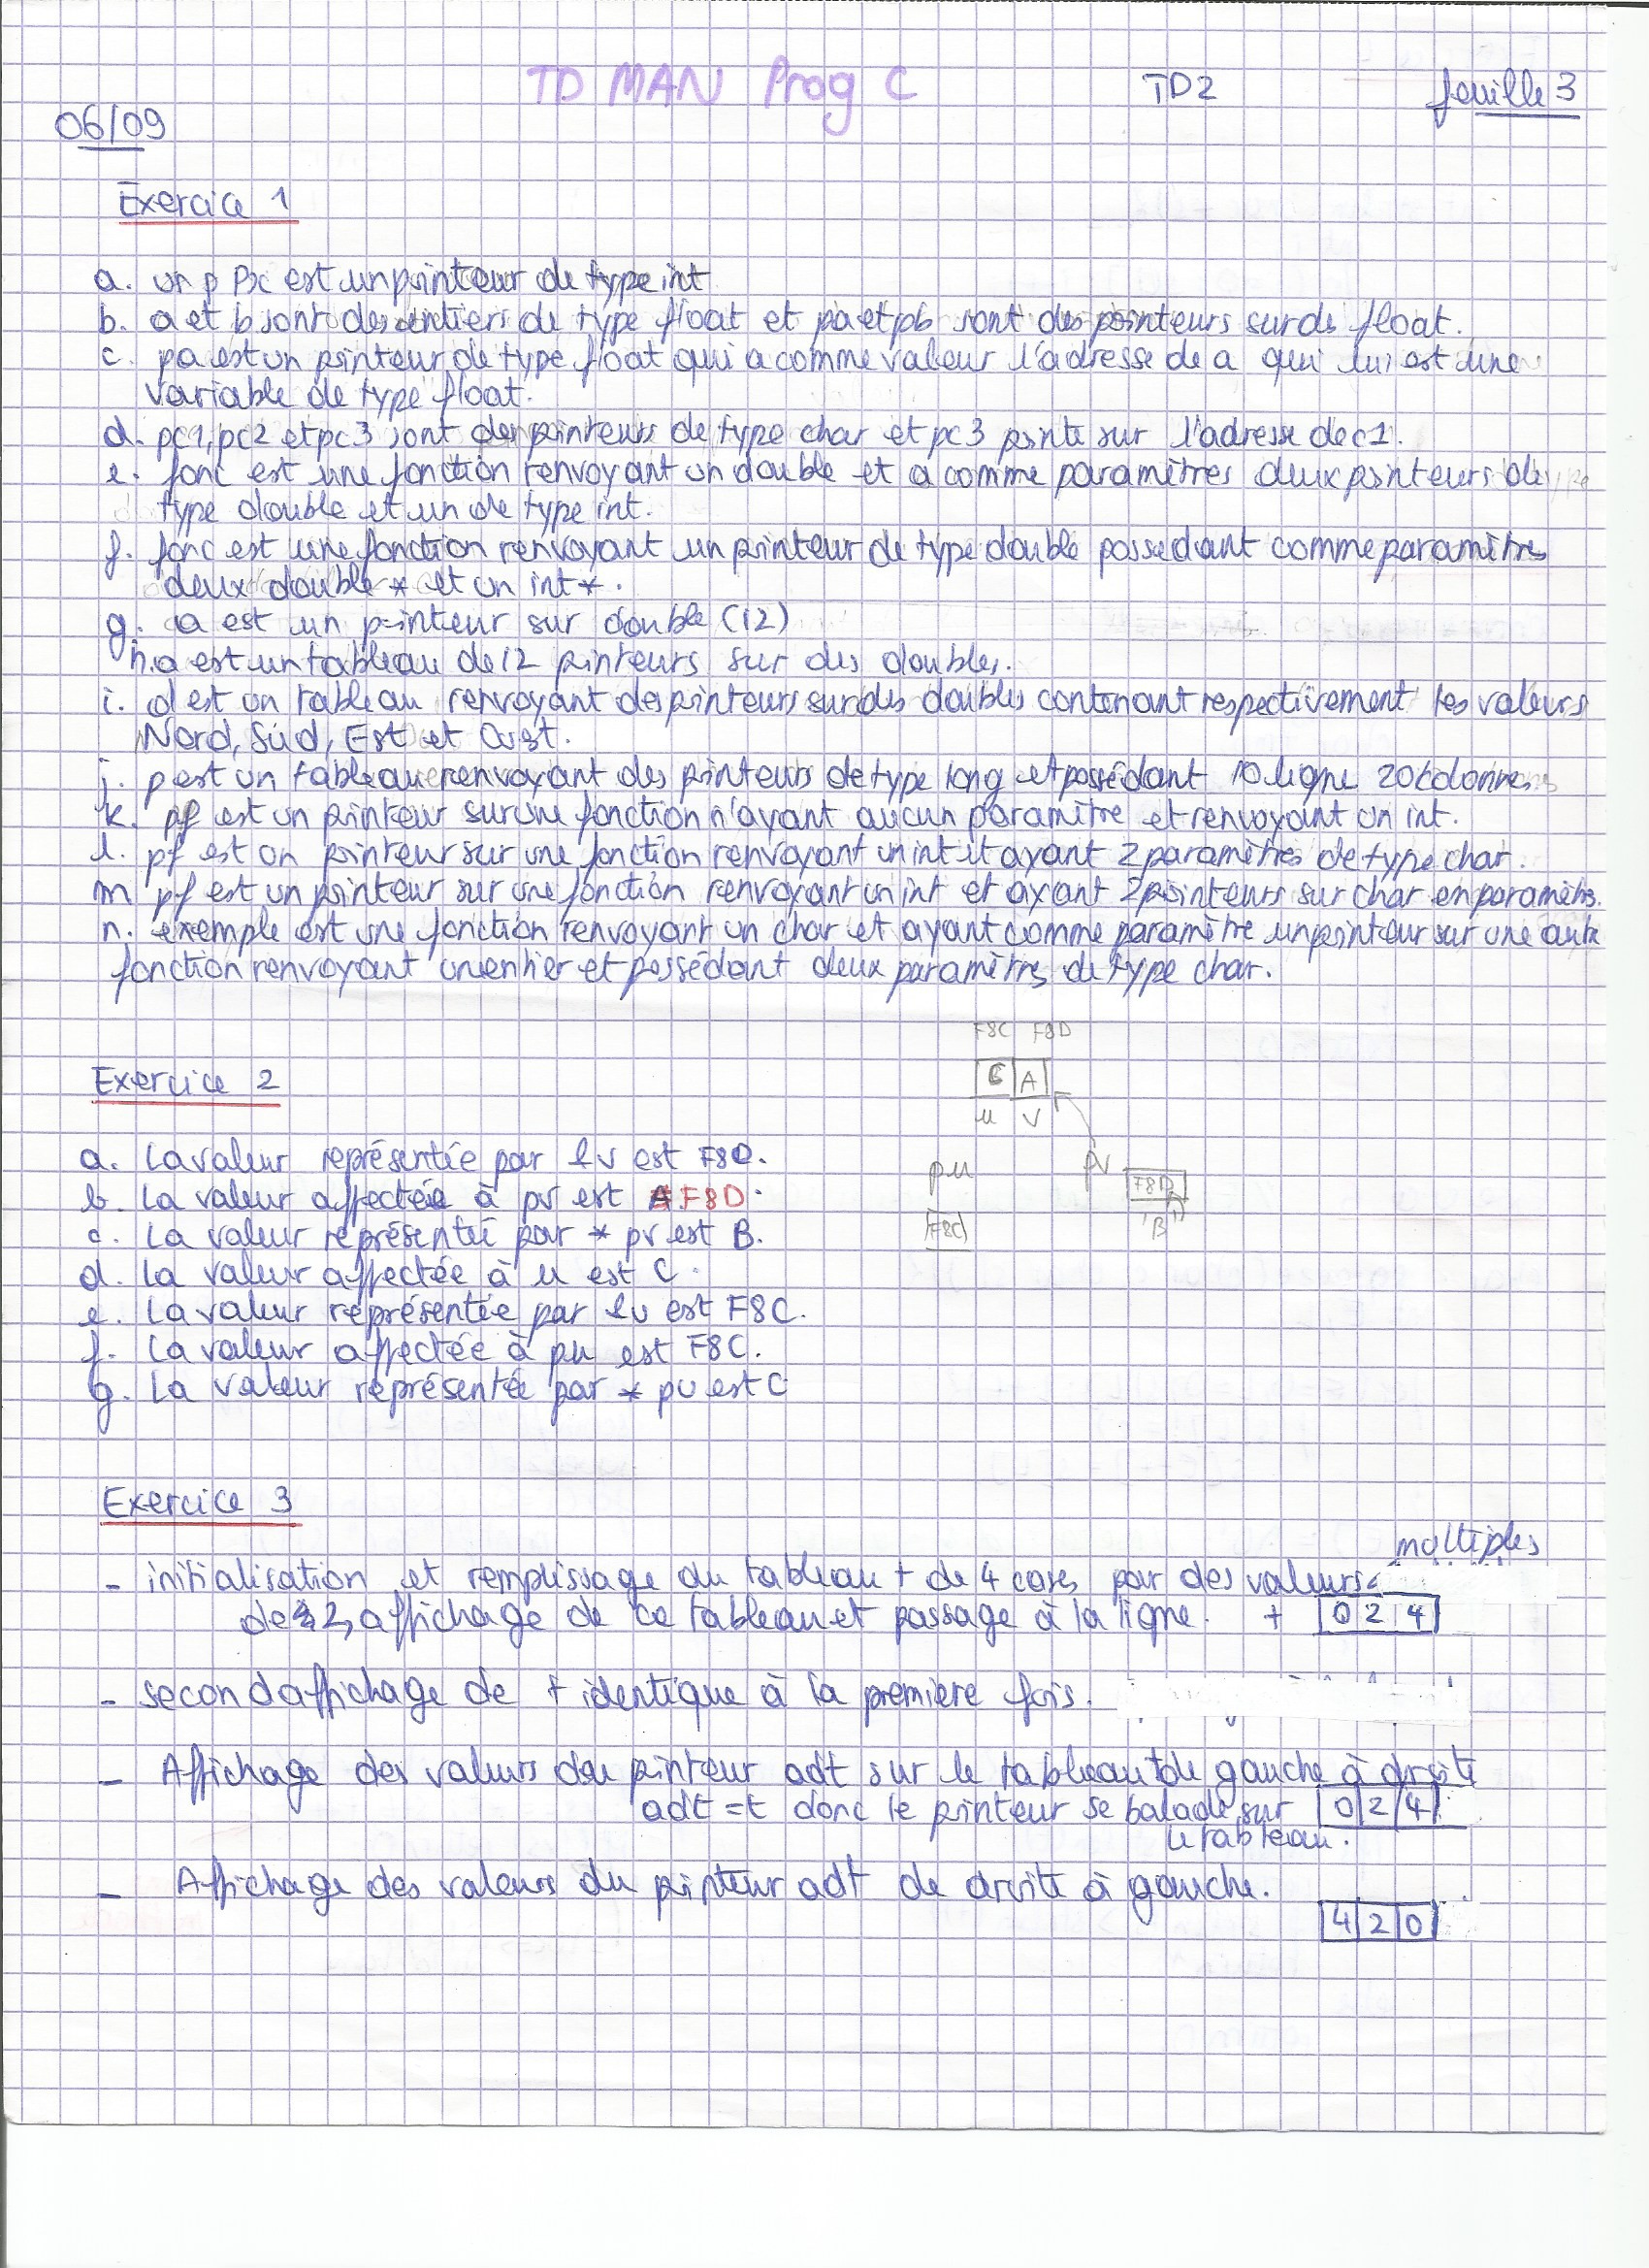 TD MAN Prog C TD2 feuille 3
06/09
Exercice 1
a. Px est un pointeur de type int
b. a et b sont des entiers de type float et pa et pb sont des pointeurs sur de float.
c. pa est un pointeur de type float qui a comme valeur l'adresse de a qui lui est une
variable de type float.
d. pc1, pc2 et pc3 sont des pointeurs de type char et pc3 pointe sur l'adresse de c1.
e. fonc est une fonction renvoyant un double et a comme paramètres deux pointeurs de
type double et un de type int.
f. fonc est une fonction renvoyant un pointeur de type double possedant comme paramètres
deux double * et un int *.
g. a est un pointeur sur double (12)
h. a est un tableau de 12 pointeurs sur des doubles.
i. d est un tableau renvoyant des pointeurs sur des doubles contenant respectivement les valeurs
Nord, Sud, Est et Ouest.
j. p est un tableau renvoyant des pointeurs de type long et possédant 10 ligne 20 colonnes
k. pf est un pointeur sur une fonction n'ayant aucun paramètre et renvoyant un int.
l. pf est un pointeur sur une fonction renvoyant un int et ayant 2 paramètres de type char.
m pf est un pointeur sur une fonction renvoyant un int et ayant 2 pointeurs sur char en paramètres.
n. exemple est une fonction renvoyant un char et ayant comme paramètre un pointeur sur une autre
fonction renvoyant un entier et possédant deux paramètres de type char.
F8C F8D
C A
u v
Exercice 2
a. La valeur représentée par &v est F8D.
b. La valeur affectée à pv est F8D.
c. La valeur représentée par * pv est B.
d. La valeur affectée à u est C.
e. La valeur représentée par &u est F8C.
f. La valeur affectée à pu est F8C.
g. La valeur représentée par * pu est C
pu pv F8D
F8C 'B'
Exercice 3
multiples
- initialisation et remplissage du tableau t de 4 cases par des valeurs
de 2, affichage de ce tableau et passage à la ligne. t 0 2 4
- second affichage de t identique à la premiere fois.
- Affichage des valeurs du pointeur adt sur le tableau t de gauche à droite
adt = t donc le pointeur se balade sur 0 2 4
le tableau.
- Affichage des valeurs du pointeur adt de droite à gauche.
4 2 0